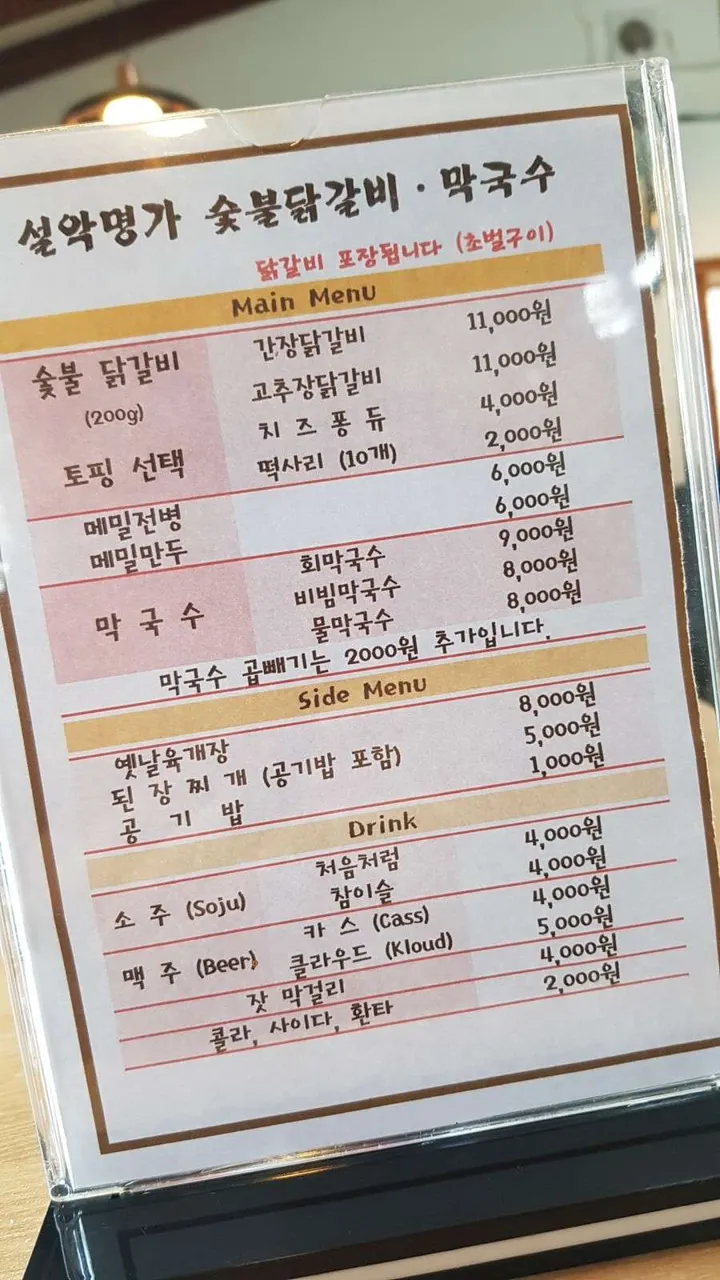 설악명가 숯불닭갈비·막국수
닭갈비 포장됩니다 (초벌구이)
Main Menu
숯불 닭갈비 (200g)
간장닭갈비 11,000원
고추장닭갈비 11,000원
토핑 선택
치즈퐁듀 4,000원
떡사리 (10개) 2,000원
메밀전병 6,000원
메밀만두 6,000원
막국수
회막국수 9,000원
비빔막국수 8,000원
물막국수 8,000원
막국수 곱빼기는 2000원 추가입니다.
Side Menu
옛날육개장 8,000원
된장찌개 (공기밥 포함) 5,000원
공기밥 1,000원
Drink
소주 (Soju)
처음처럼 4,000원
참이슬 4,000원
맥주 (Beer)
카스 (Cass) 4,000원
클라우드 (Kloud) 5,000원
잣 막걸리 4,000원
콜라, 사이다, 환타 2,000원